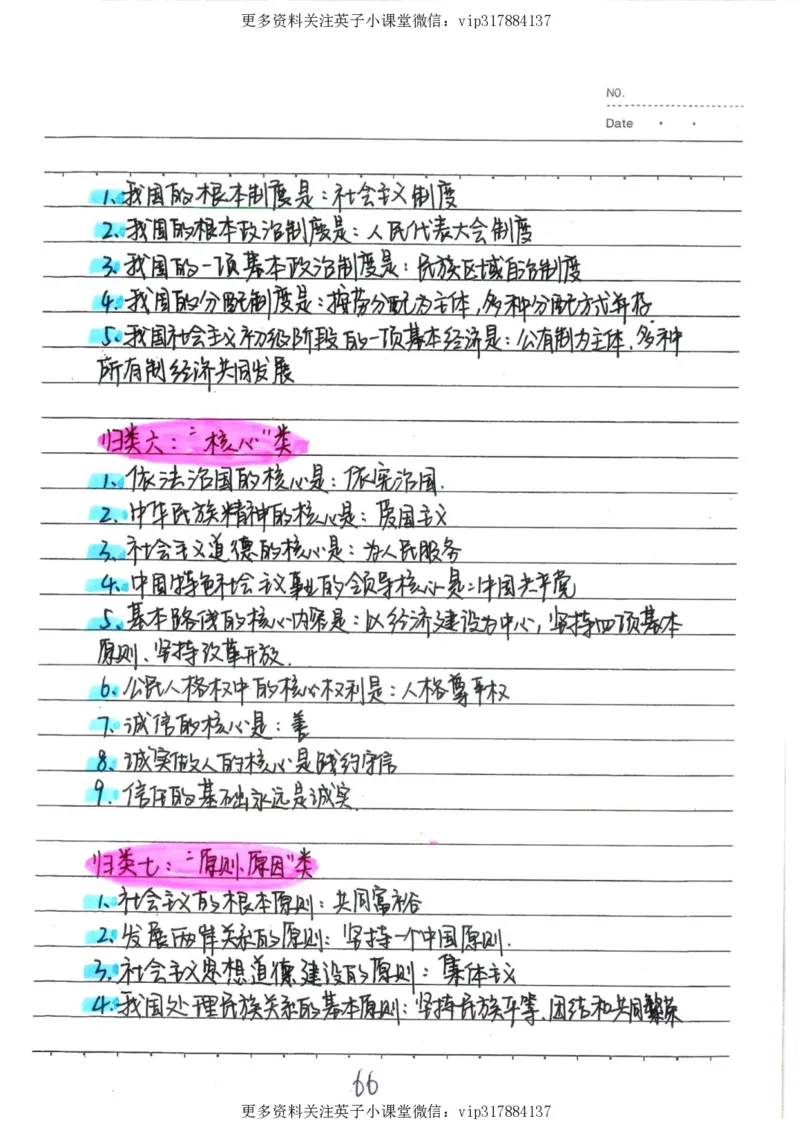 更多资料关注英子小课堂微信：vip317884137
NO.
Date
1、我国的根本制度是：社会主义制度
2、我国的根本政治制度是：人民代表大会制度
3、我国的一项基本政治制度是：民族区域自治制度
4、我国的分配制度是：按劳分配为主体，多种分配方式并存
5、我国社会主义初级阶段的一项基本经济是：公有制为主体、多种
所有制经济共同发展
归类六：“核心”类
1、依法治国的核心是：依宪治国.
2、中华民族精神的核心是：爱国主义
3、社会主义道德的核心是：为人民服务
4、中国特色社会主义事业的领导核心是：中国共产党
5、基本路线的核心内容是：以经济建设为中心，坚持四项基本
原则、坚持改革开放.
6、公民人格权中的核心权利是：人格尊严权
7、诚信的核心是：善
8、诚实做人的核心是践约守信
9、信任的基础永远是诚实.
归类七：“原则、原因”类
1、社会主义的根本原则：共同富裕
2、发展两岸关系的原则：坚持一个中国原则.
3、社会主义思想道德建设的原则：集体主义
4、我国处理民族关系的基本原则：坚持民族平等、团结和共同繁荣
66
更多资料关注英子小课堂微信：vip317884137